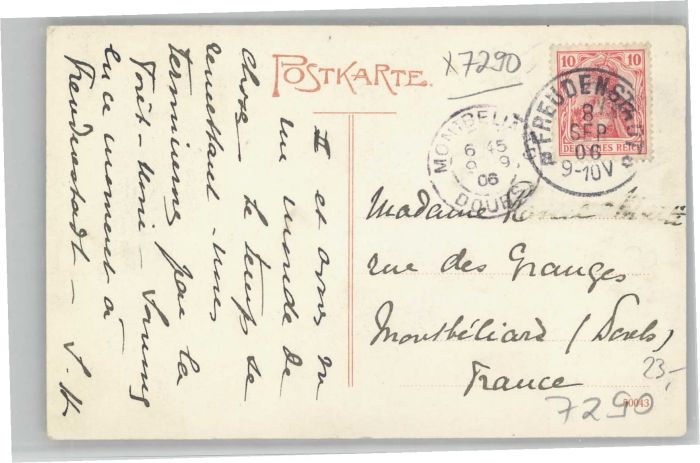 POSTKARTE.
X7290
10 10
DEUTSCHES REICH
FREUDENSTADT
8
SEP
06
9-10V
MONTBELIARD
6 45
9 9
06
DOUBS
II et avons vu
un monde de
choses - le temps se
remettant - nous
terminons par la
Forêt-noire - Sommes
en ce moment à
Freudenstadt - S.H.
Madame
rue des Granges
Montbéliard (Doubs)
France
23,-
7290
50043